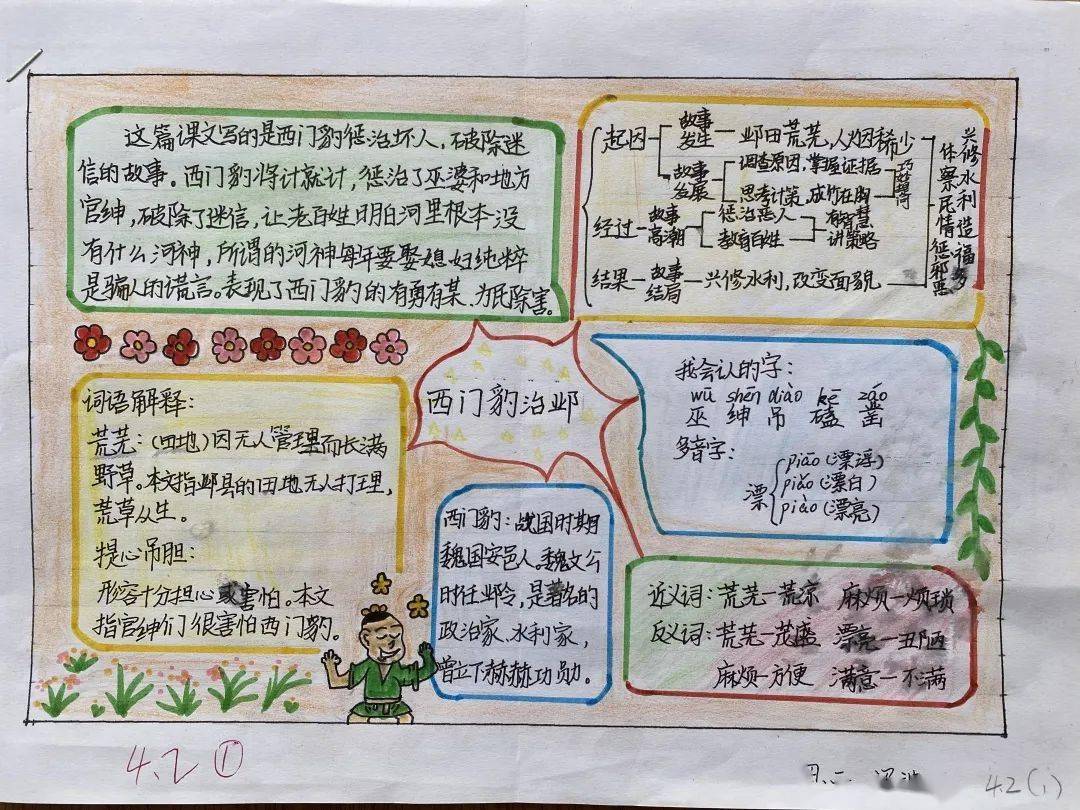 这篇课文写的是西门豹惩治坏人，破除迷
信的故事。西门豹将计就计，惩治了巫婆和地方
官绅，破除了迷信，让老百姓明白河里根本没
有什么河神，所谓的河神每年要娶媳妇纯粹
是骗人的谎言。表现了西门豹的有勇有某、为民除害。
起因 故事发生 邺田荒芜，人烟稀少
故事发展 调查原因，掌握证据
思考计策，成竹在胸
巧妙
经过 故事高潮 惩治恶人
教育百姓
有智慧
讲策略
结果 故事结局 兴修水利，改变面貌
体察民情 惩邪恶
兴修水利 造福
西门豹治邺
词语解释：
荒芜：（田地）因无人管理而长满
野草。本文指邺县的田地无人打理，
荒草丛生。
提心吊胆：
形容十分担心或害怕。本文
指官绅们很害怕西门豹。
我会认的字：
wū shēn diào kē záo
巫 绅 吊 磕 凿
多音字：
漂
piāo（漂浮）
piǎo（漂白）
piào（漂亮）
西门豹：战国时期
魏国安邑人。魏文公
时任邺令，是著名的
政治家、水利家，
曾立下赫赫功勋。
近义词：荒芜—荒凉 麻烦—烦琐
反义词：荒芜—茂盛 漂亮—丑陋
麻烦—方便 满意—不满
4.2 ①
4.2（1）